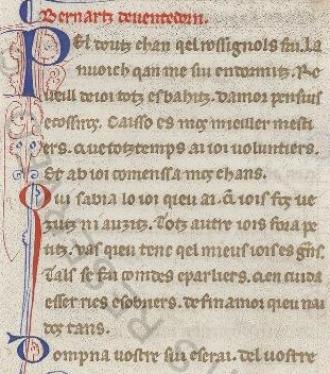 Bernartz deuentedorn.
Pel doutz chan qel rossignols fai. La
nuoich qan me sui endormitz. Re
ueill de ioi totz esbahitz. Damor pensius
ecossirz. Caisso es mos mieiller mesti
ers. Que totz temps ai ioi uoluntiers.
Et ab ioi comenssa mos chans.
Qui sabia lo ioi qieu ai. Ql iois fos ue
zutz ni auzitz. Totz autre iois fora pe
titz. Vas qieu tenc qel mieus iois es grans.
Tals se fai comdes eparliers. Qien cuida
esser rics esobriers. De fin amor qieu nai
dos tans.
Dompna uostre sui eserai. Del uostre